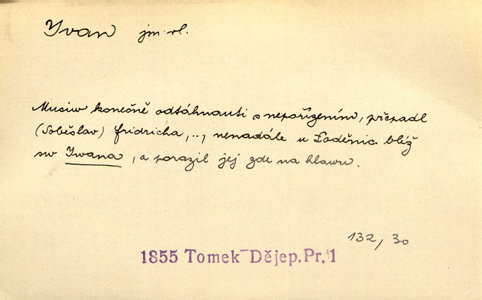 Ivan jm. vl.
Musiw konečně odtáhnauti s nepořízením, přepadl
(Soběslav) Fridricha, .., nenadále u Loděnic blíž
sw. Iwana, a porazil jej zde na hlawu.
132, 30
1855 Tomek Dějep. Pr. 1